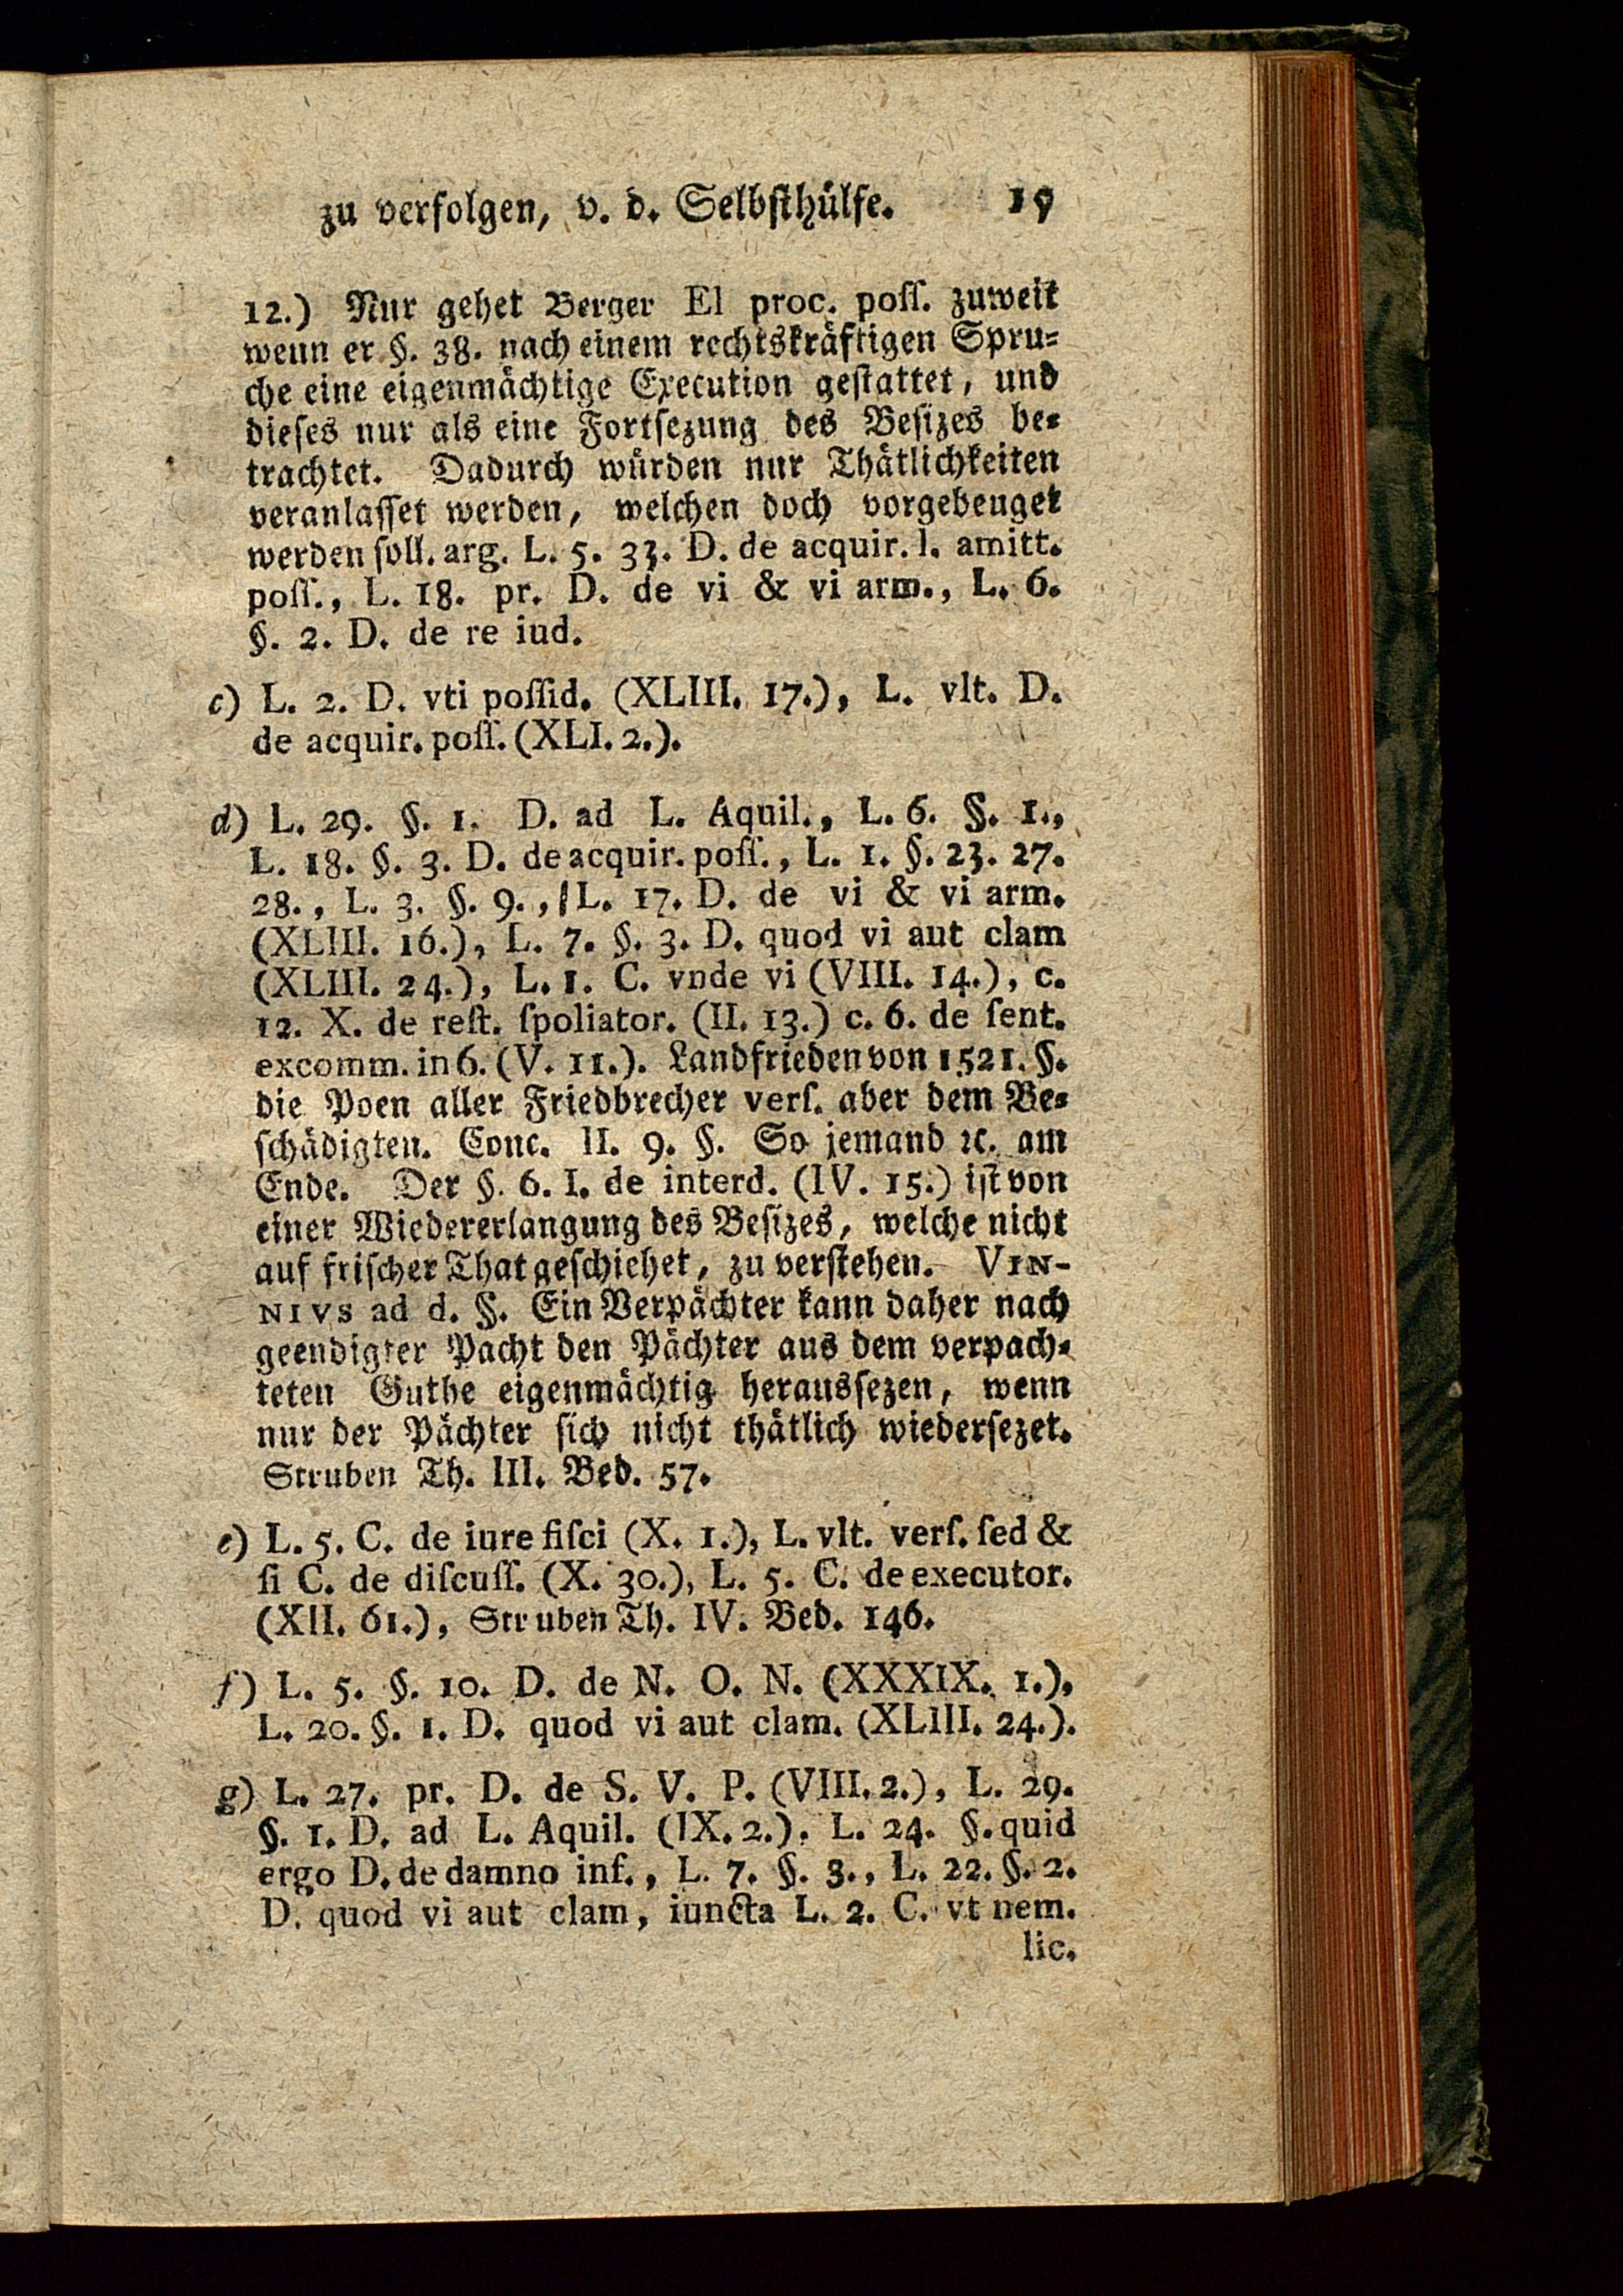 zu verfolgen, v. d. Selbsthülfe. 19
12.) Nur gehet Berger El proc. poſſ. zuweit
wenn er §. 38. nach einem rechtskräftigen Spru-
che eine eigenmächtige Execution geſtattet, und
dieſes nur als eine Fortſezung des Beſizes be-
trachtet. Dadurch würden nur Thätlichkeiten
veranlaſſet werden, welchen doch vorgebeuget
werden ſoll. arg. L. 5. 33. D. de acquir. l. amitt.
poſſ., L. 18. pr. D. de vi & vi arm., L. 6.
§. 2. D. de re iud.
c) L. 2. D. vti poſſid. (XLIII. 17.), L. vlt. D.
de acquir. poſſ. (XLI. 2.).
d) L. 29. §. 1. D. ad L. Aquil., L. 6. §. 1.,
L. 18. §. 3. D. de acquir. poſſ., L. 1. §. 23. 27.
28., L. 3. §. 9., L. 17. D. de vi & vi arm.
(XLIII. 16.), L. 7. §. 3. D. quod vi aut clam
(XLIII. 24.), L. 1. C. vnde vi (VIII. 14.), c.
12. X. de reſt. ſpoliator. (II. 13.) c. 6. de ſent.
excomm. in 6. (V. 11.). Landfrieden von 1521. §.
die Poen aller Friedbrecher verſ. aber dem Be-
ſchädigten. Conc. II. 9. §. So jemand ꝛc. am
Ende. Der §. 6. I. de interd. (IV. 15.) iſt von
einer Wiedererlangung des Beſizes, welche nicht
auf friſcher That geſchiehet, zu verſtehen. VIN-
NIVS ad d. §. Ein Verpächter kann daher nach
geendigter Pacht den Pächter aus dem verpach-
teten Guthe eigenmächtig herausſezen, wenn
nur der Pächter ſich nicht thätlich wiederſezet.
Struben Th. III. Bed. 57.
e) L. 5. C. de iure fiſci (X. 1.), L. vlt. verſ. ſed &
ſi C. de diſcuſſ. (X. 30.), L. 5. C. de executor.
(XII. 61.), Struben Th. IV. Bed. 146.
f) L. 5. §. 10. D. de N. O. N. (XXXIX. 1.),
L. 20. §. 1. D. quod vi aut clam. (XLIII. 24.).
g) L. 27. pr. D. de S. V. P. (VIII. 2.), L. 29.
§. 1. D. ad L. Aquil. (IX. 2.), L. 24. §. quid
ergo D. de damno inf., L. 7. §. 3., L. 22. §. 2.
D. quod vi aut clam, iuncta L. 2. C. vt nem.
lic.